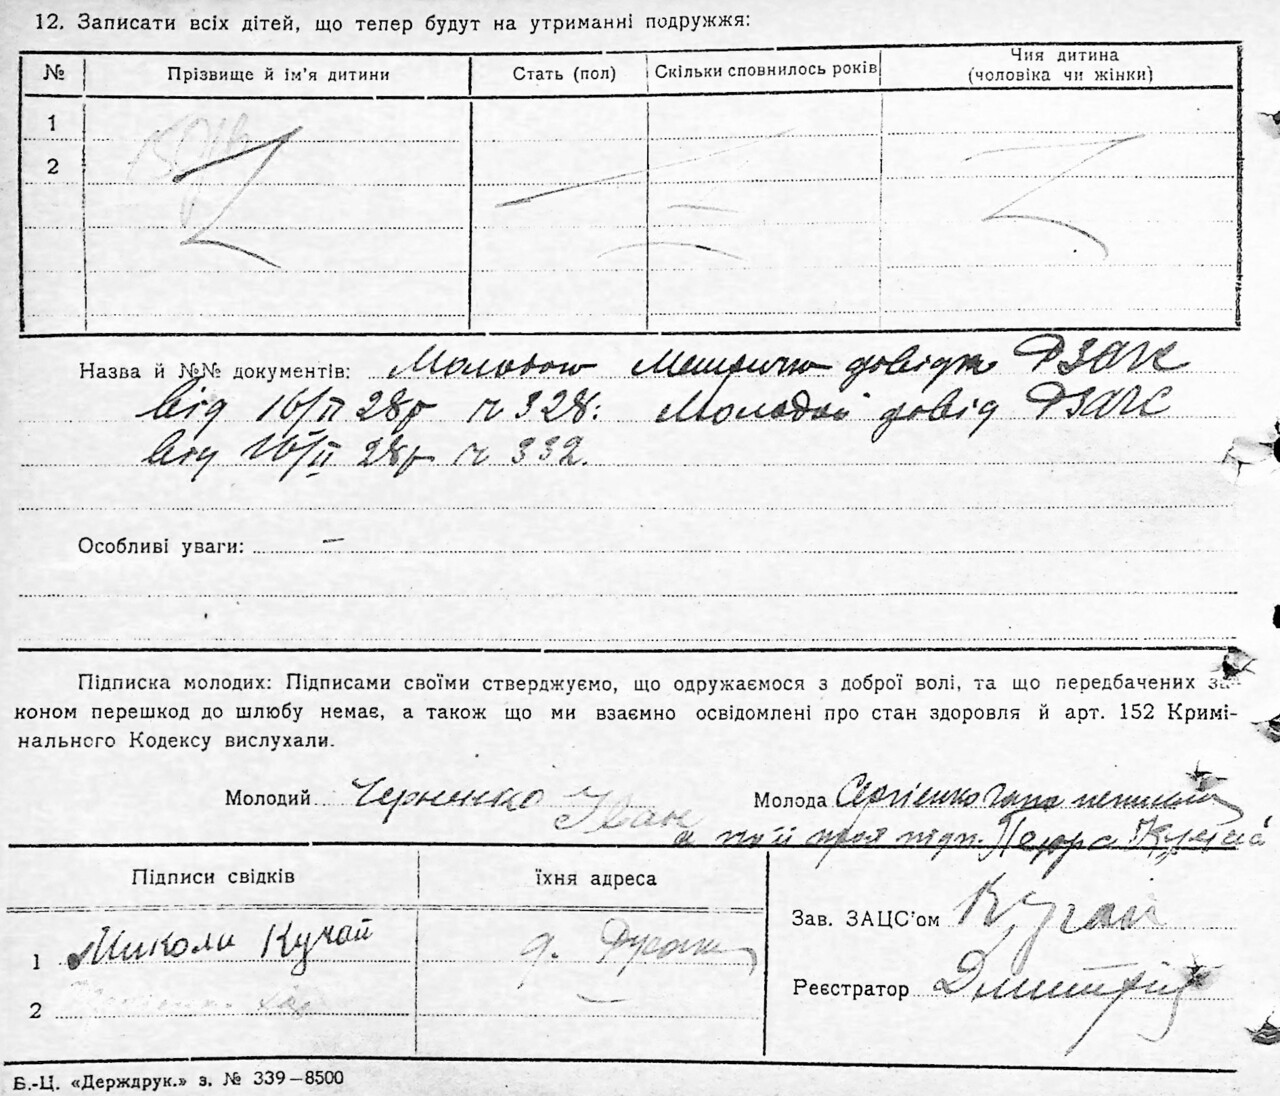 12. Записати всіх дітей, що тепер будут на утриманні подружжя:
№ Прізвище й ім'я дитини Стать (пол) Скільки сповнилось років Чия дитина (чоловіка чи жінки)
1
2
Назва й №№ документів: Молодого довідж
від 16/II 28р ч 328. Молодой довід
від 16/II 28р ч 332.
Особливі уваги: —
Підписка молодих: Підписами своїми стверджуємо, що одружаємося з доброї волі, та що передбачених за-
коном перешкод до шлюбу немає, а також що ми взаємно освідомлені про стан здоровля й арт. 152 Кримі-
нального Кодексу вислухали.
Молодий Черненко Іван Молода Сергієнко
Підписи свідків Їхня адреса
Зав. ЗАЦС'ом Кучай
1 Миколи Кучай
Реєстратор Дмитрій
2
Б.-Ц. «Держдрук.» з. № 339—8500